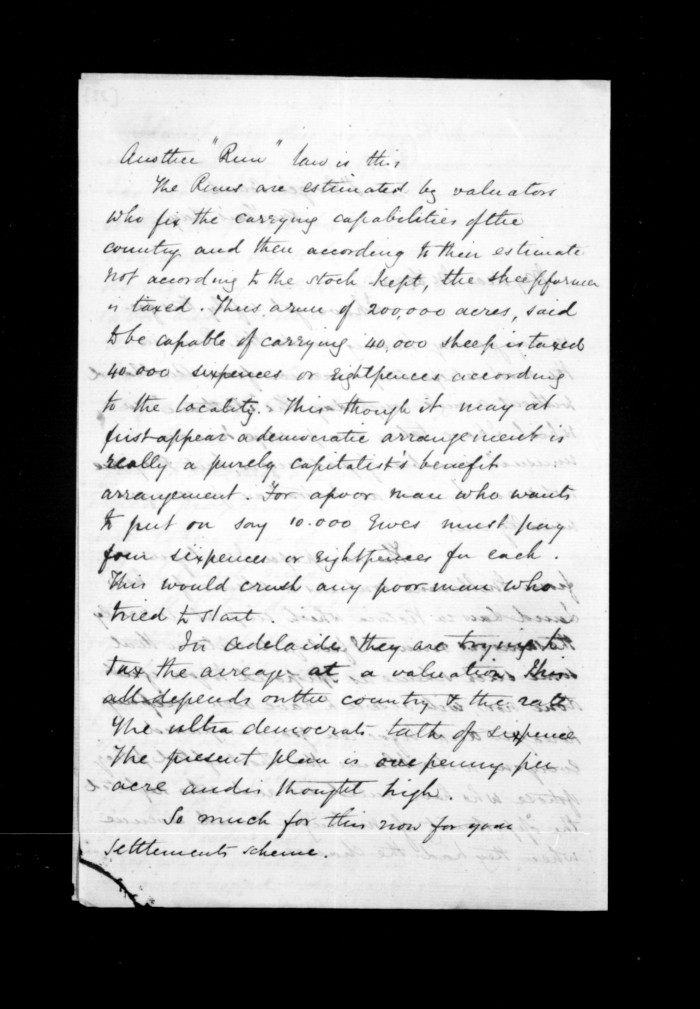 Another "Run" law is this
The Runs are estimated by valuators
who fix the carrying capabilities of the
country and then according to their estimate
not according to the stock kept, the sheepfarmer
is taxed. Thus a run of 200,000 acres, said
to be capable of carrying 40,000 sheep is taxed
40.000 sixpences or eightpences according
to the locality. This though it may at
first appear a democratic arrangement is
really a purely capitalist's benefit
arrangement. For a poor man who wants
to put on say 10.000 Ewes must pay
four sixpences or eightpences for each.
This would crush any poor man who
tried to start.
In Adelaide they are trying to
tax the acreage at a valuation. This
all depends on the country & the rate
The ultra democrats talk of sixpence
The present plan is one penny per
acre and is thought high.
So much for this now for your
settlements scheme.